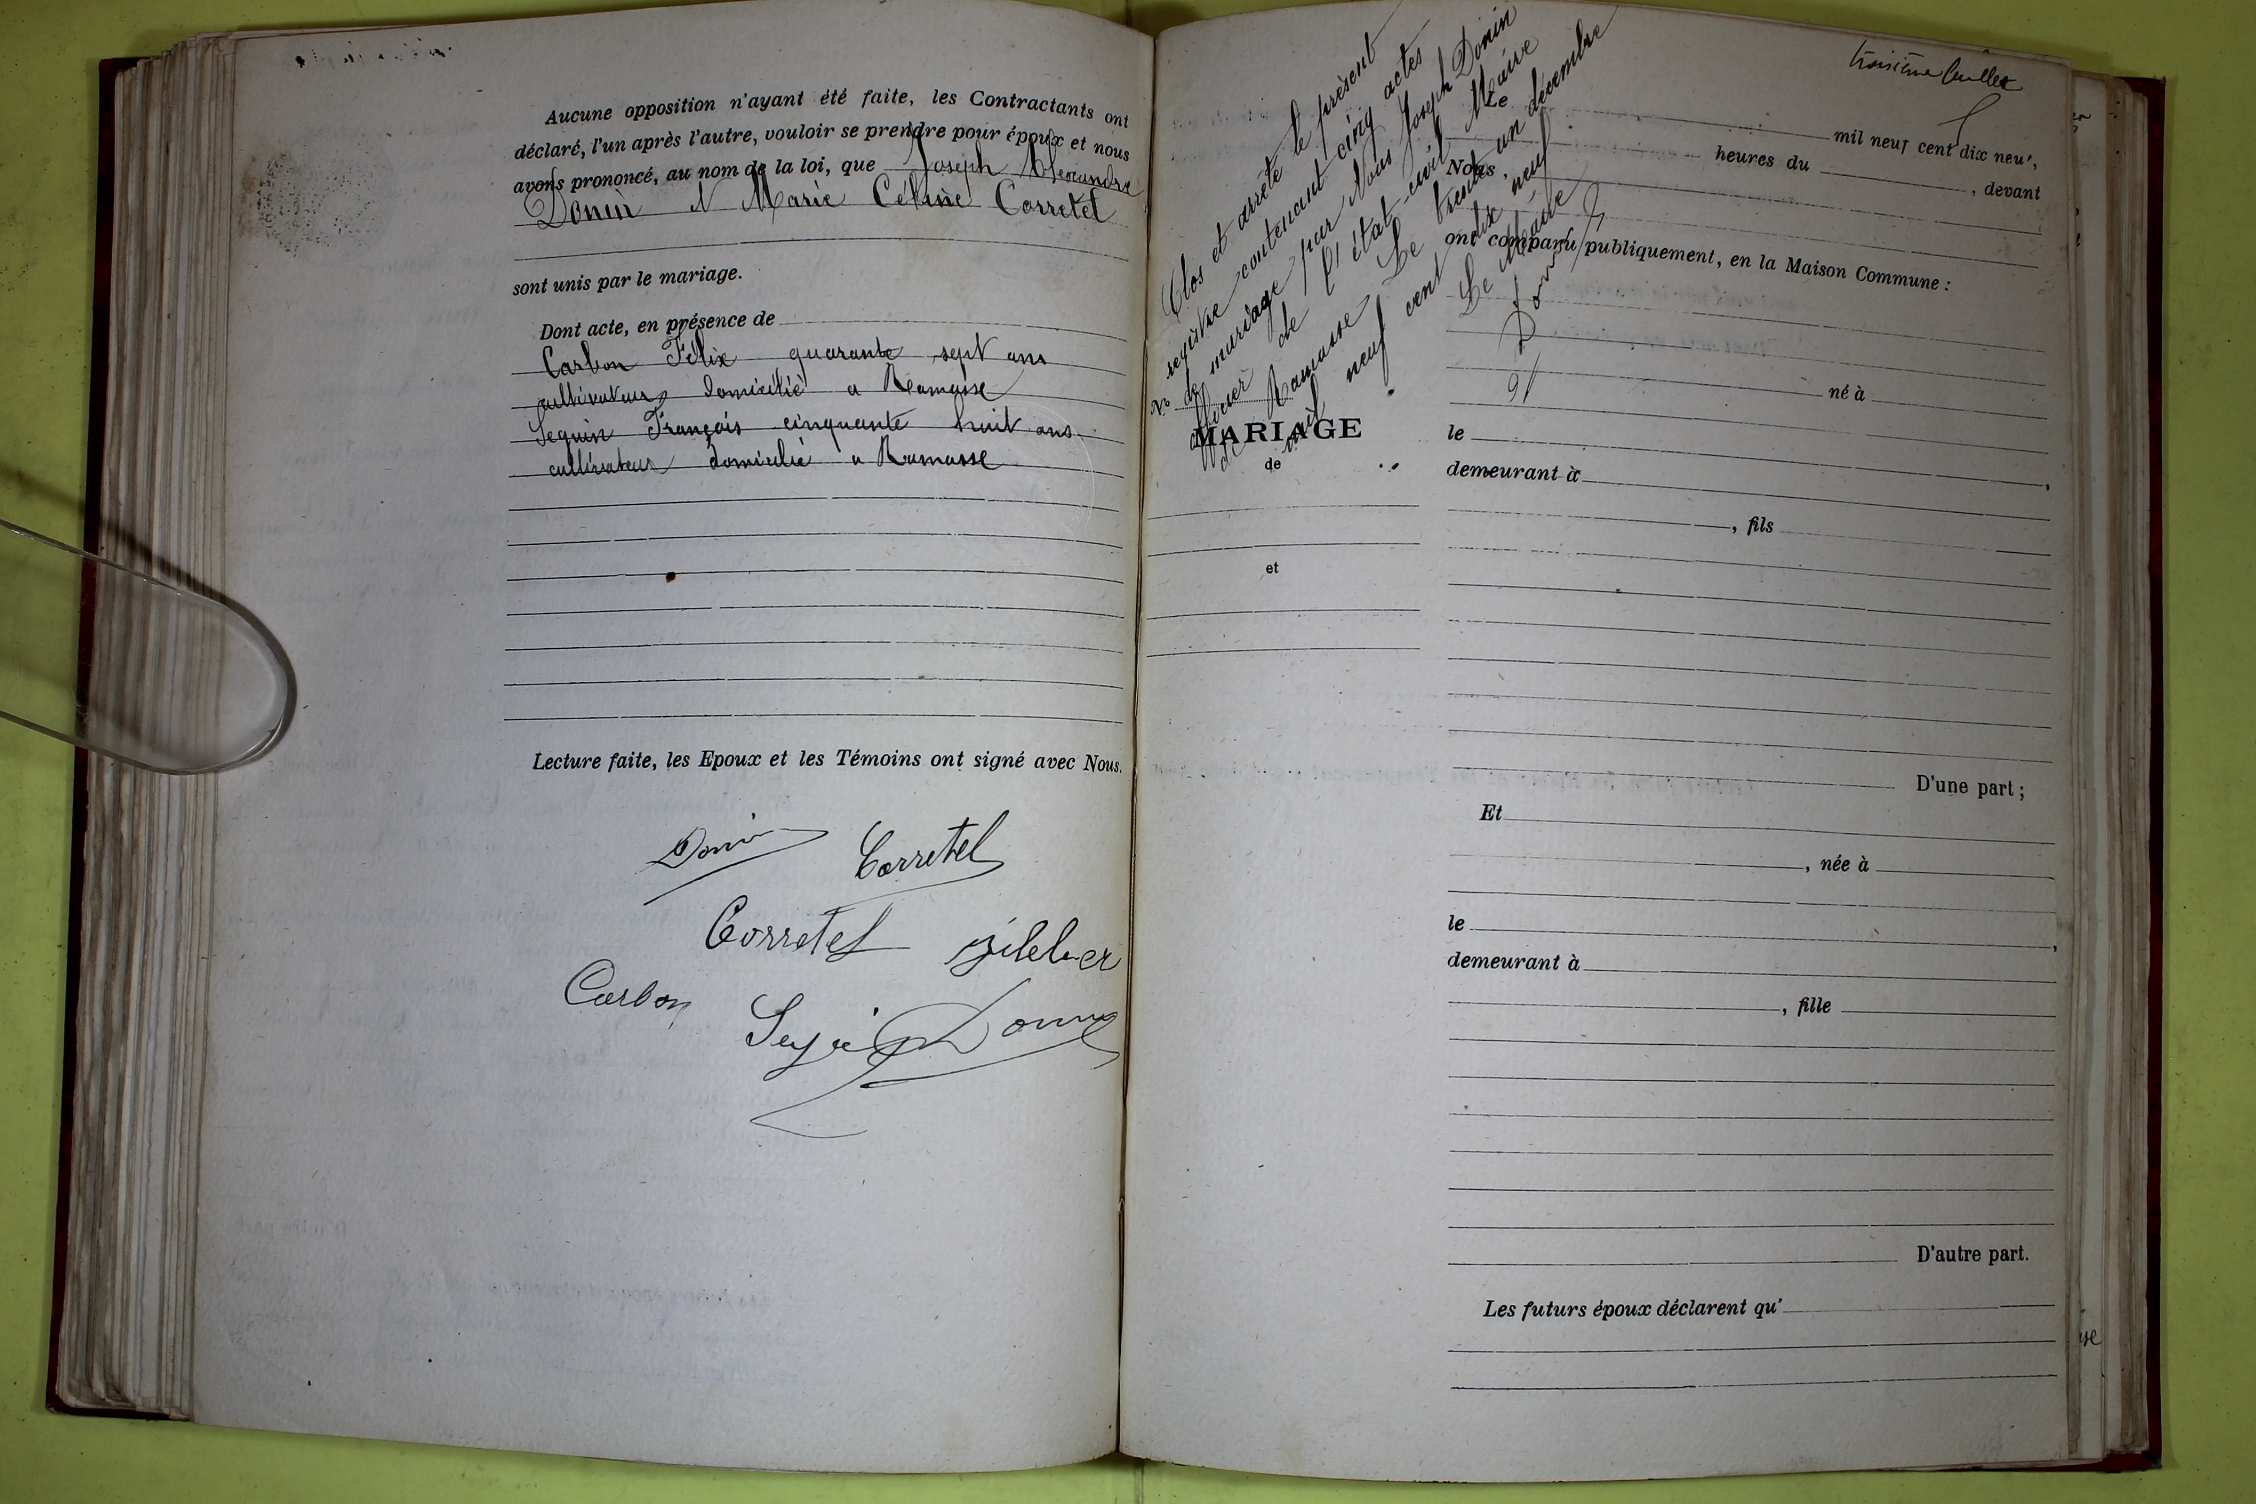 Aucune opposition n'ayant été faite, les Contractants ont
déclaré, l'un après l'autre, vouloir se prendre pour époux et nous
avons prononcé, au nom de la loi, que Joseph Alexandre
Donin & Marie Céline Corretel
sont unis par le mariage.
Dont acte, en présence de
Carbon Félix quarante sept ans
cultivateur domicilié a Ramasse
Seguin François cinquante huit ans
cultivateur domicilié a Ramasse
Lecture faite, les Epoux et les Témoins ont signé avec Nous.
Donin Corretel
Corretel
Carbon
Clos et arrêté le présent
registre contenant cinq actes
de mariage par Nous Joseph Donin
officier de l'état-civil Maire
de Ramasse Le trente un décembre
mil neuf cent dix neuf
Le Maire
Donin
troisième feuillet
Le
mil neuf cent dix neuf,
heures du , devant
Nous,
ont comparu publiquement, en la Maison Commune :
No
MARIAGE
de
et
né à
le
demeurant à
, fils
D'une part ;
Et
, née à
le
demeurant à
, fille
D'autre part.
Les futurs époux déclarent qu'